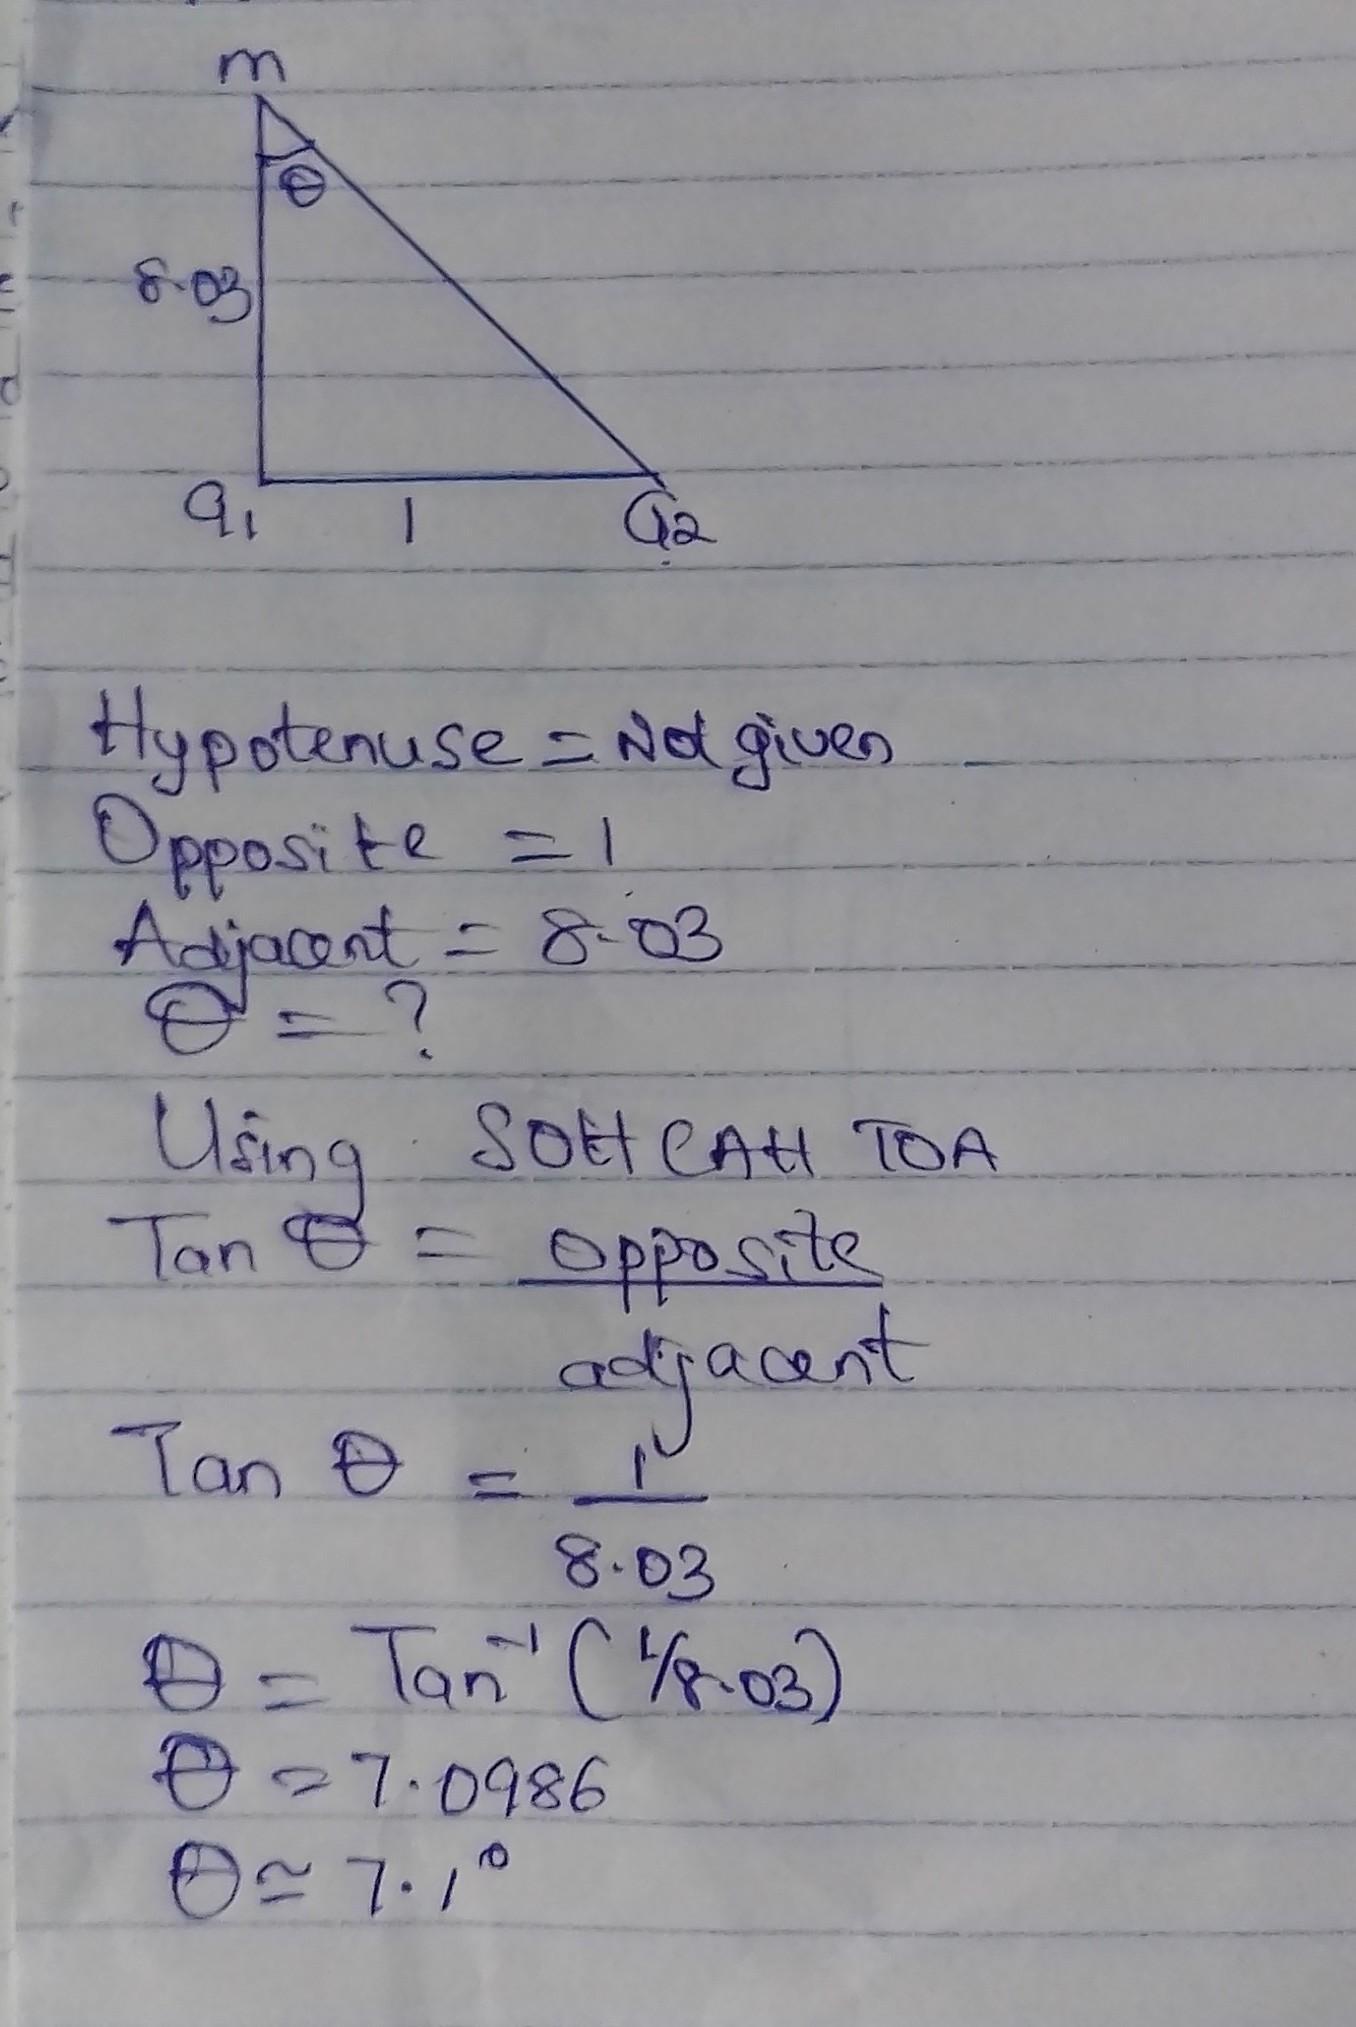 m
θ
8.03
Q₁ 1 Q₂
Hypotenuse = Not given
Opposite = 1
Adjacent = 8.03
θ = ?
Using SOH CAH TOA
Tan θ = opposite
adjacent
Tan θ = 1
8.03
θ = Tan⁻¹ (1/8.03)
θ = 7.0986
θ ≃ 7.1°